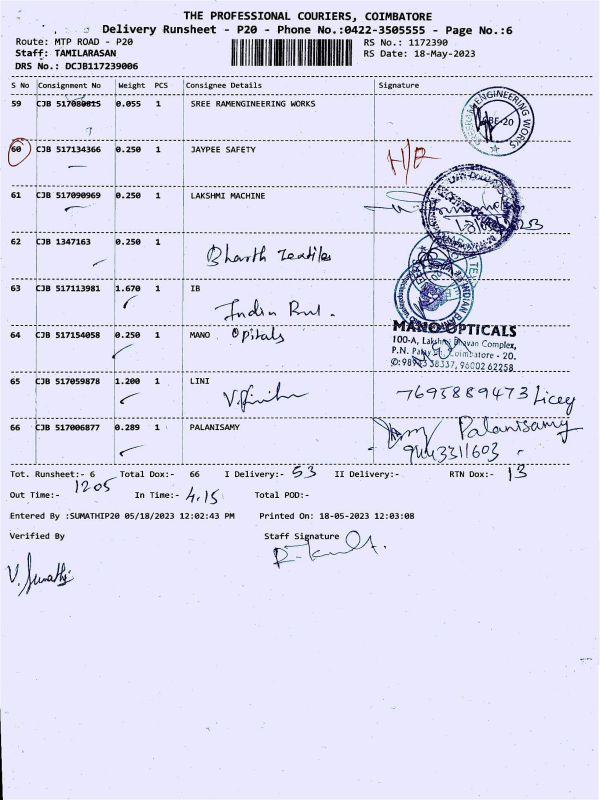 THE PROFESSIONAL COURIERS, COIMBATORE
Delivery Runsheet - P20 - Phone No.:0422-3505555 - Page No.:6
Route: MTP ROAD - P20 RS No.: 1172390
Staff: TAMILARASAN RS Date: 18-May-2023
DRS No.: DCJB117239006
S No Consignment No Weight PCS Consignee Details Signature
59 CJB 517080815 0.055 1 SREE RAMENGINEERING WORKS
60 CJB 517134366 0.250 1 JAYPEE SAFETY
61 CJB 517090969 0.250 1 LAKSHMI MACHINE
62 CJB 1347163 0.250 1
Bharth Textiles
63 CJB 517113981 1.670 1 IB
Indian
64 CJB 517154058 0.250 1 MANO Opitals
MANO OPTICALS
100-A, Lakshmi Bhavan Complex,
Coimbatore - 20.
96002 62258
65 CJB 517059878 1.200 1 LINI
7695889473
66 CJB 517006877 0.289 1 PALANISAMY
Palanisamy
Tot. Runsheet:- 6 Total Dox:- 66 I Delivery:- 53 II Delivery:- RTN Dox:- 13
Out Time:- 1205 In Time:- 4.15 Total POD:-
Entered By :SUMATHIP20 05/18/2023 12:02:43 PM Printed On: 18-05-2023 12:03:08
Verified By Staff Signature
V. Sumathi